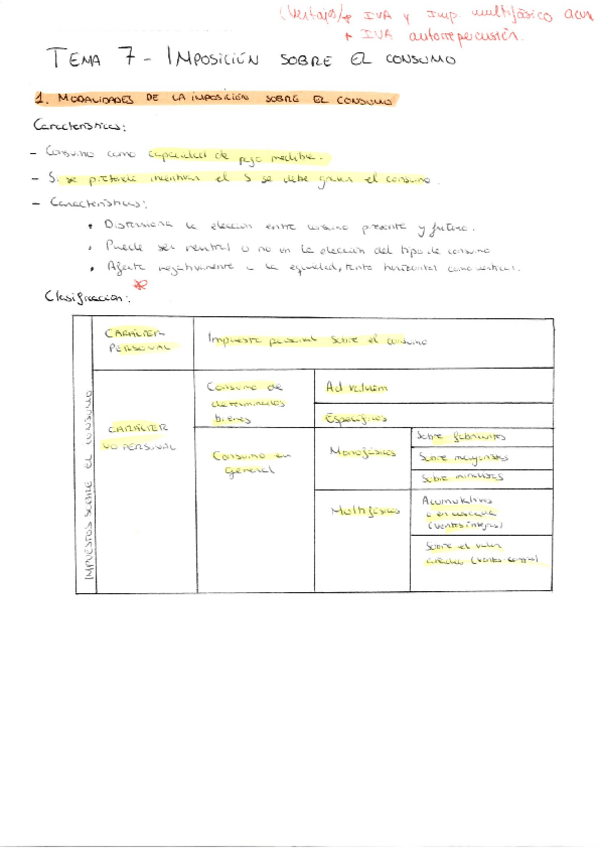 (Ventajas/ IVA y Imp. multifásico acum
+ IVA autorrepercusión.
TEMA 7 - IMPOSICIÓN SOBRE EL CONSUMO
1. MODALIDADES DE LA IMPOSICIÓN SOBRE EL CONSUMO
Características:
- Consumo como capacidad de pago medible.
- Si se pretende incentivar el S se debe gravar el consumo.
- Características:
• Distorsiona la elección entre consumo presente y futuro.
• Puede ser neutral o no en la elección del tipo de consumo
• Afecta negativamente a la equidad, tanto horizontal como vertical.
Clasificación:
IMPUESTOS SOBRE EL CONSUMO
CARÁCTER PERSONAL
Impuesto personal sobre el consumo
CARÁCTER NO PERSONAL
Consumo de
determinados
bienes
Ad valorem
Específicos
Consumo en
general
Monofásicos
Sobre fabricantes
Sobre mayoristas
Sobre minoristas
Multifásicos
Acumulativos
o en cascada
(ventas íntegras)
Sobre el valor
añadido (ventas